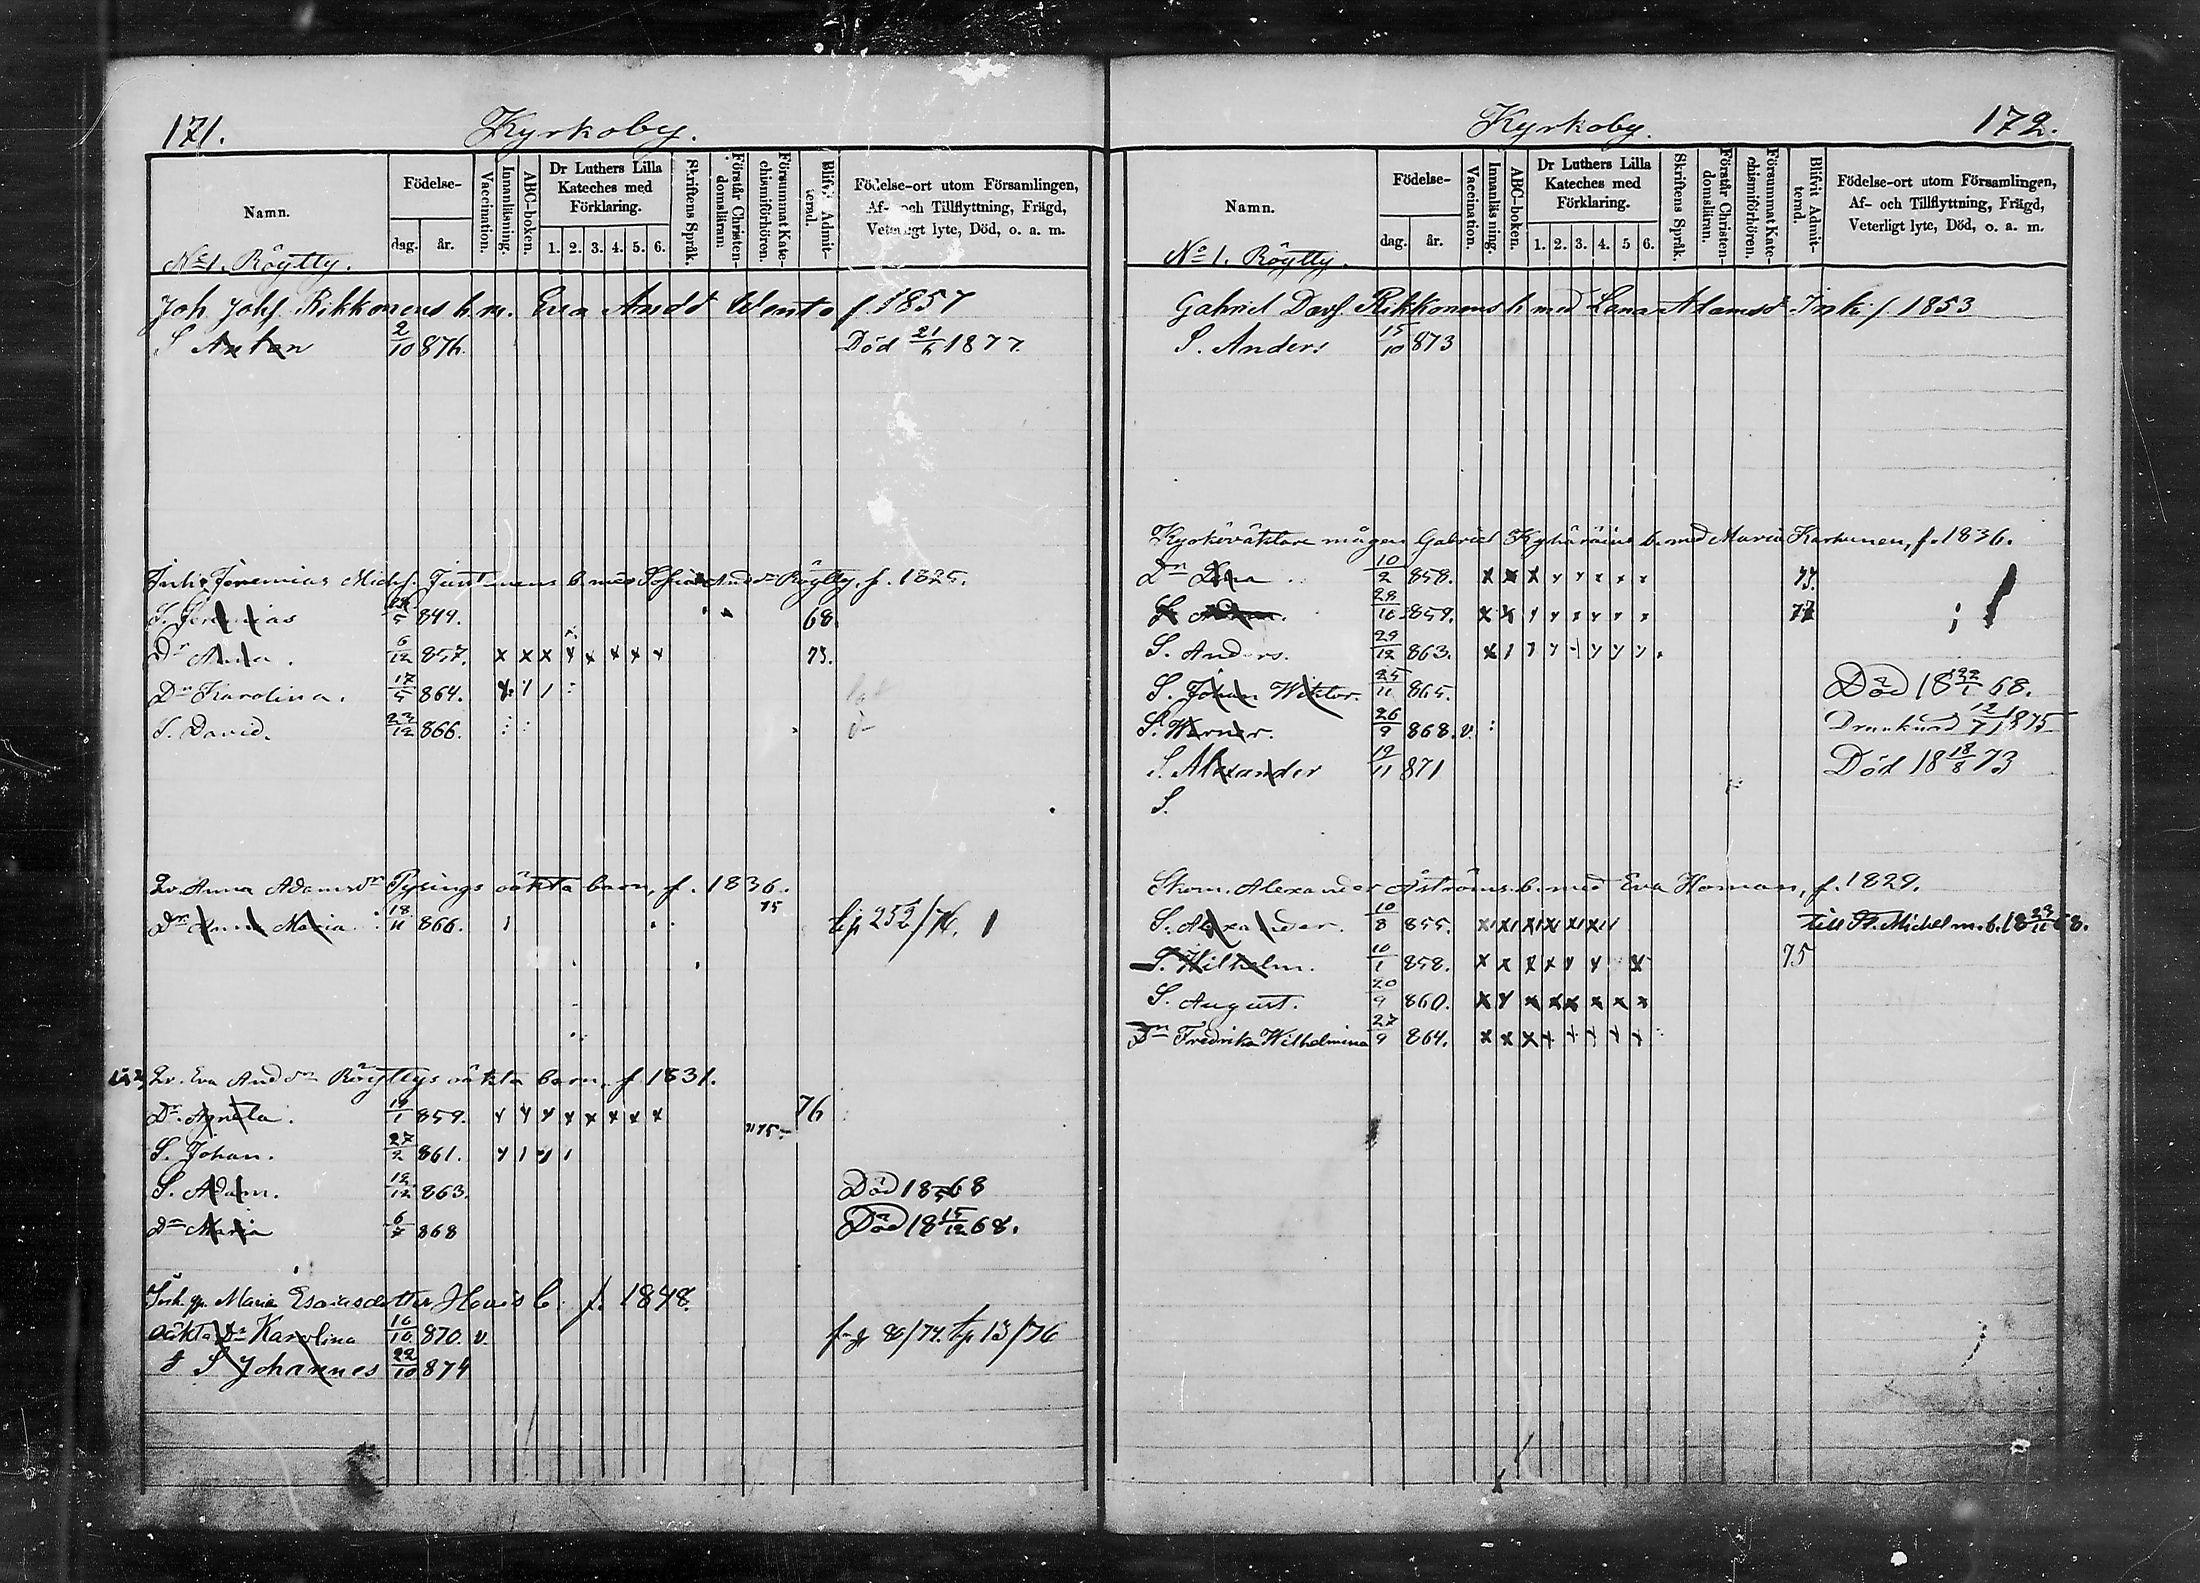 171.
Kyrkoby.
Namn.
Födelse-
dag.
år.
Vaccination.
Innanläsning.
ABC-boken.
Dr Luthers Lilla
Kateches med
Förklaring.
1. 2. 3. 4. 5. 6.
Skriftens Språk.
Förstår Christen-
domsläran.
Försummat Kate-
chismiförhören.
Blifvit Admit-
terad.
Födelse-ort utom Församlingen,
Af- och Tillflyttning, Frägd,
Veterligt lyte, Död, o. a. m.
No 1. Röytty.
Joh Johs. Rikkonens b. m. Eva Andsd Wento f. 1857
S Anton 2/10 876. Död 21/6 1877.
Jeremias Michs. b. med Sofia Andsdr Röytty, f. 1825.
S. Jeremias /5 849. 68
Dr Anna. 6/12 857. x x x x x x x x 73.
Dr Karolina. 17/5 864.
S. David. 23/12 866.
Anna Adamsdr oäkta barn, f. 1836.
75
Dr Anna Maria 18/11 866. bp 252/76.
Eva Andsdr Röyttys oäkta barn, f. 1831.
Dr. Agneta. 19/1 859. x x x x x x x x 76
75
S. Johan. 27/2 861.
S. Adam. 12/12 863. Död 18 68
Dr Maria 6/7 868 Död 18 15/12 68.
Maria Esaiasdotter f. 1848.
oäkta Dr Karolina 10/10 870. v. 80/74. bp 13/76
S Johannes 22/10 874
172.
Kyrkoby.
Namn.
Födelse-
dag.
år.
Vaccination.
Innanläsning.
ABC-boken.
Dr Luthers Lilla
Kateches med
Förklaring.
1. 2. 3. 4. 5 6.
Skriftens Språk.
Förstår Christen-
domsläran.
Försummat Kate-
chismiförhören.
Blifvit Admit-
terad.
Födelse-ort utom Församlingen,
Af- och Tillflyttning, Frägd,
Veterligt lyte, Död, o. a. m.
No 1. Röytty.
Gabriel Davs. Rikkonens b. med Lena Adamsd Inki f. 1853
S. Anders 15/10 873
Kyrkoväktare mågen Gabriel b. med Maria Karhunen, f. 1836.
Dr Lena 10/2 858. x x x x x x x x
S 28/10 859. 77
S. Anders. 29/12 863.
S. Johan Wiktor. 25/11 865. Död 18 22/1 68.
S. Werner. 26/9 868. v. Drunknad 12/7 1875
S. Alexander 19/11 871 Död 18 18/8 73
S.
Skom. Alexander Åströms b. med Eva Homan, f. 1829.
S. Alexander. 10/8 855. till St. Michel m. b. 18 29/11 68.
S. Wilhelm. 10/1 858. x x x x x x x 75
S. August. 20/9 860. x x x x x x x x
Dr Fredrika Wilhelmina 27/9 864. x x x x x x x x